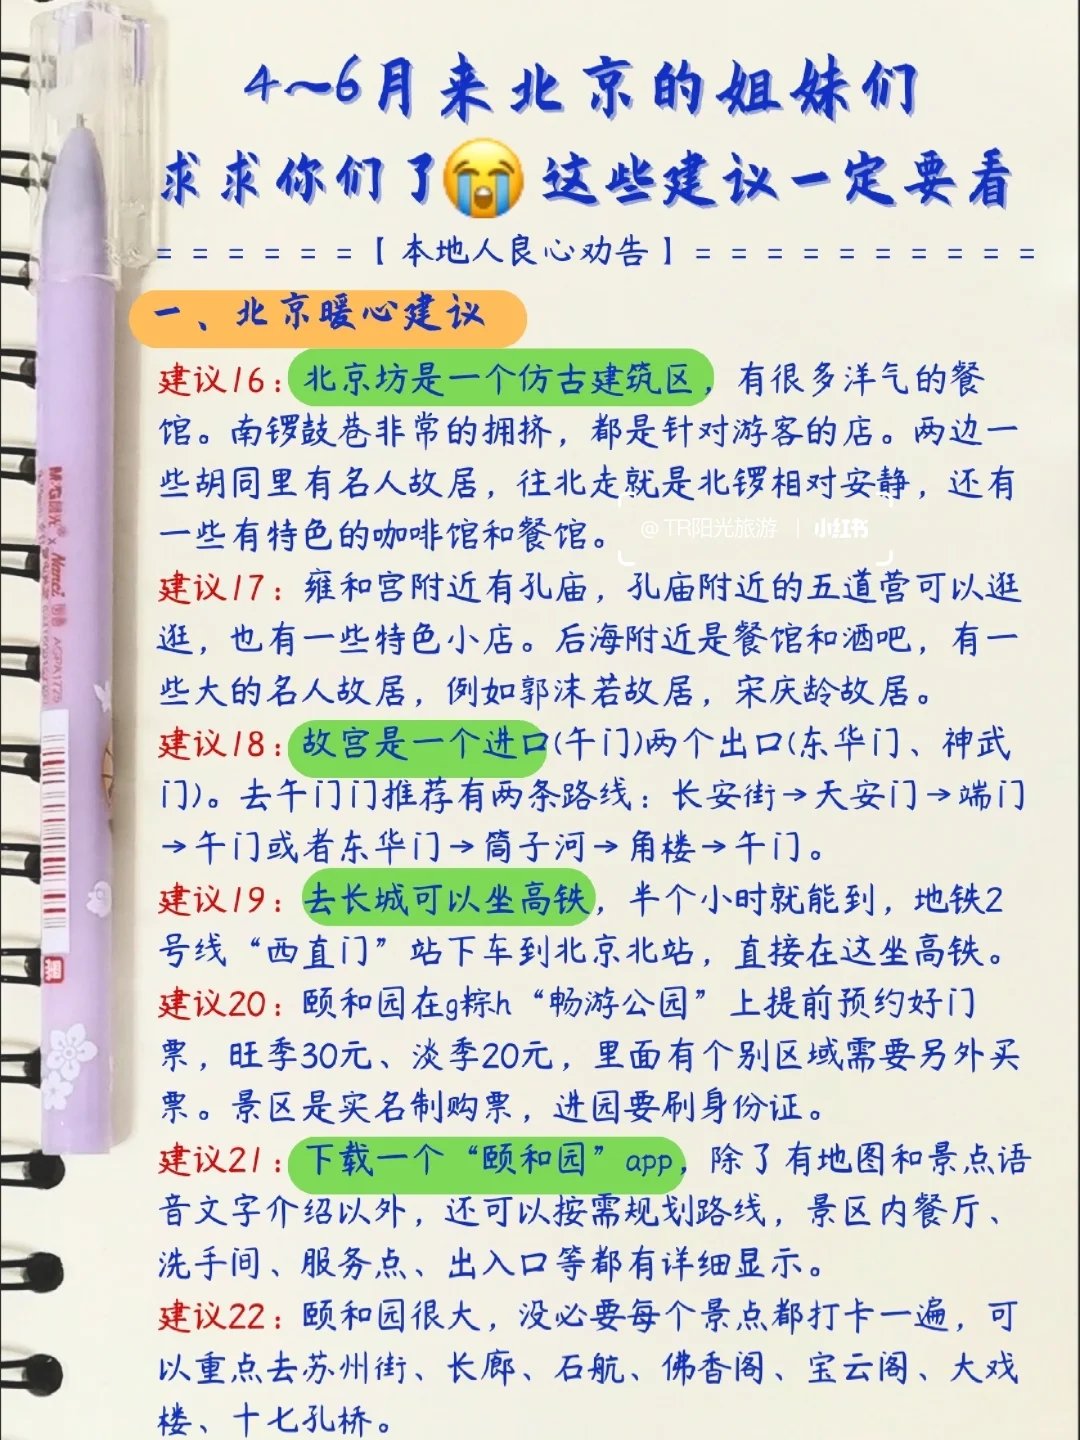 4~6月来北京的姐妹们
求求你们了😭这些建议一定要看
======【本地人良心劝告】==========
一、北京暖心建议
建议16：北京坊是一个仿古建筑区，有很多洋气的餐
馆。南锣鼓巷非常的拥挤，都是针对游客的店。两边一
些胡同里有名人故居，往北走就是北锣相对安静，还有
一些有特色的咖啡馆和餐馆。
@TR阳光旅游 | 小红书
建议17：雍和宫附近有孔庙，孔庙附近的五道营可以逛
逛，也有一些特色小店。后海附近是餐馆和酒吧，有一
些大的名人故居，例如郭沫若故居，宋庆龄故居。
建议18：故宫是一个进口(午门)两个出口(东华门、神武
门)。去午门门推荐有两条路线：长安街→天安门→端门
→午门或者东华门→筒子河→角楼→午门。
建议19：去长城可以坐高铁，半个小时就能到，地铁2
号线“西直门”站下车到北京北站，直接在这坐高铁。
建议20：颐和园在g粽h“畅游公园”上提前预约好门
票，旺季30元、淡季20元，里面有个别区域需要另外买
票。景区是实名制购票，进园要刷身份证。
建议21：下载一个“颐和园”app，除了有地图和景点语
音文字介绍以外，还可以按需规划路线，景区内餐厅、
洗手间、服务点、出入口等都有详细显示。
建议22：颐和园很大，没必要每个景点都打卡一遍，可
以重点去苏州街、长廊、石航、佛香阁、宝云阁、大戏
楼、十七孔桥。
M&G晨光® × Nanci
AGPA1725